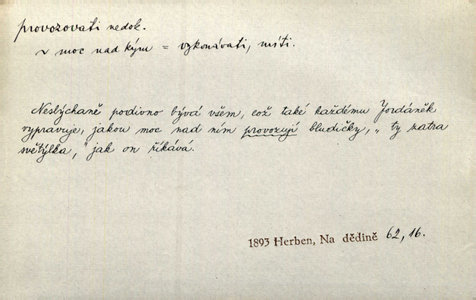 provozovati nedok.
~ moc nad kým = vykonávati, míti.
Neslýchaně podivno bývá všem, což také každému Jordáněk
vypravuje, jakou moc nad ním provozují bludičky, „ty zatra
světýlka," jak on říkává.
1893 Herben, Na dědině 62, 16.